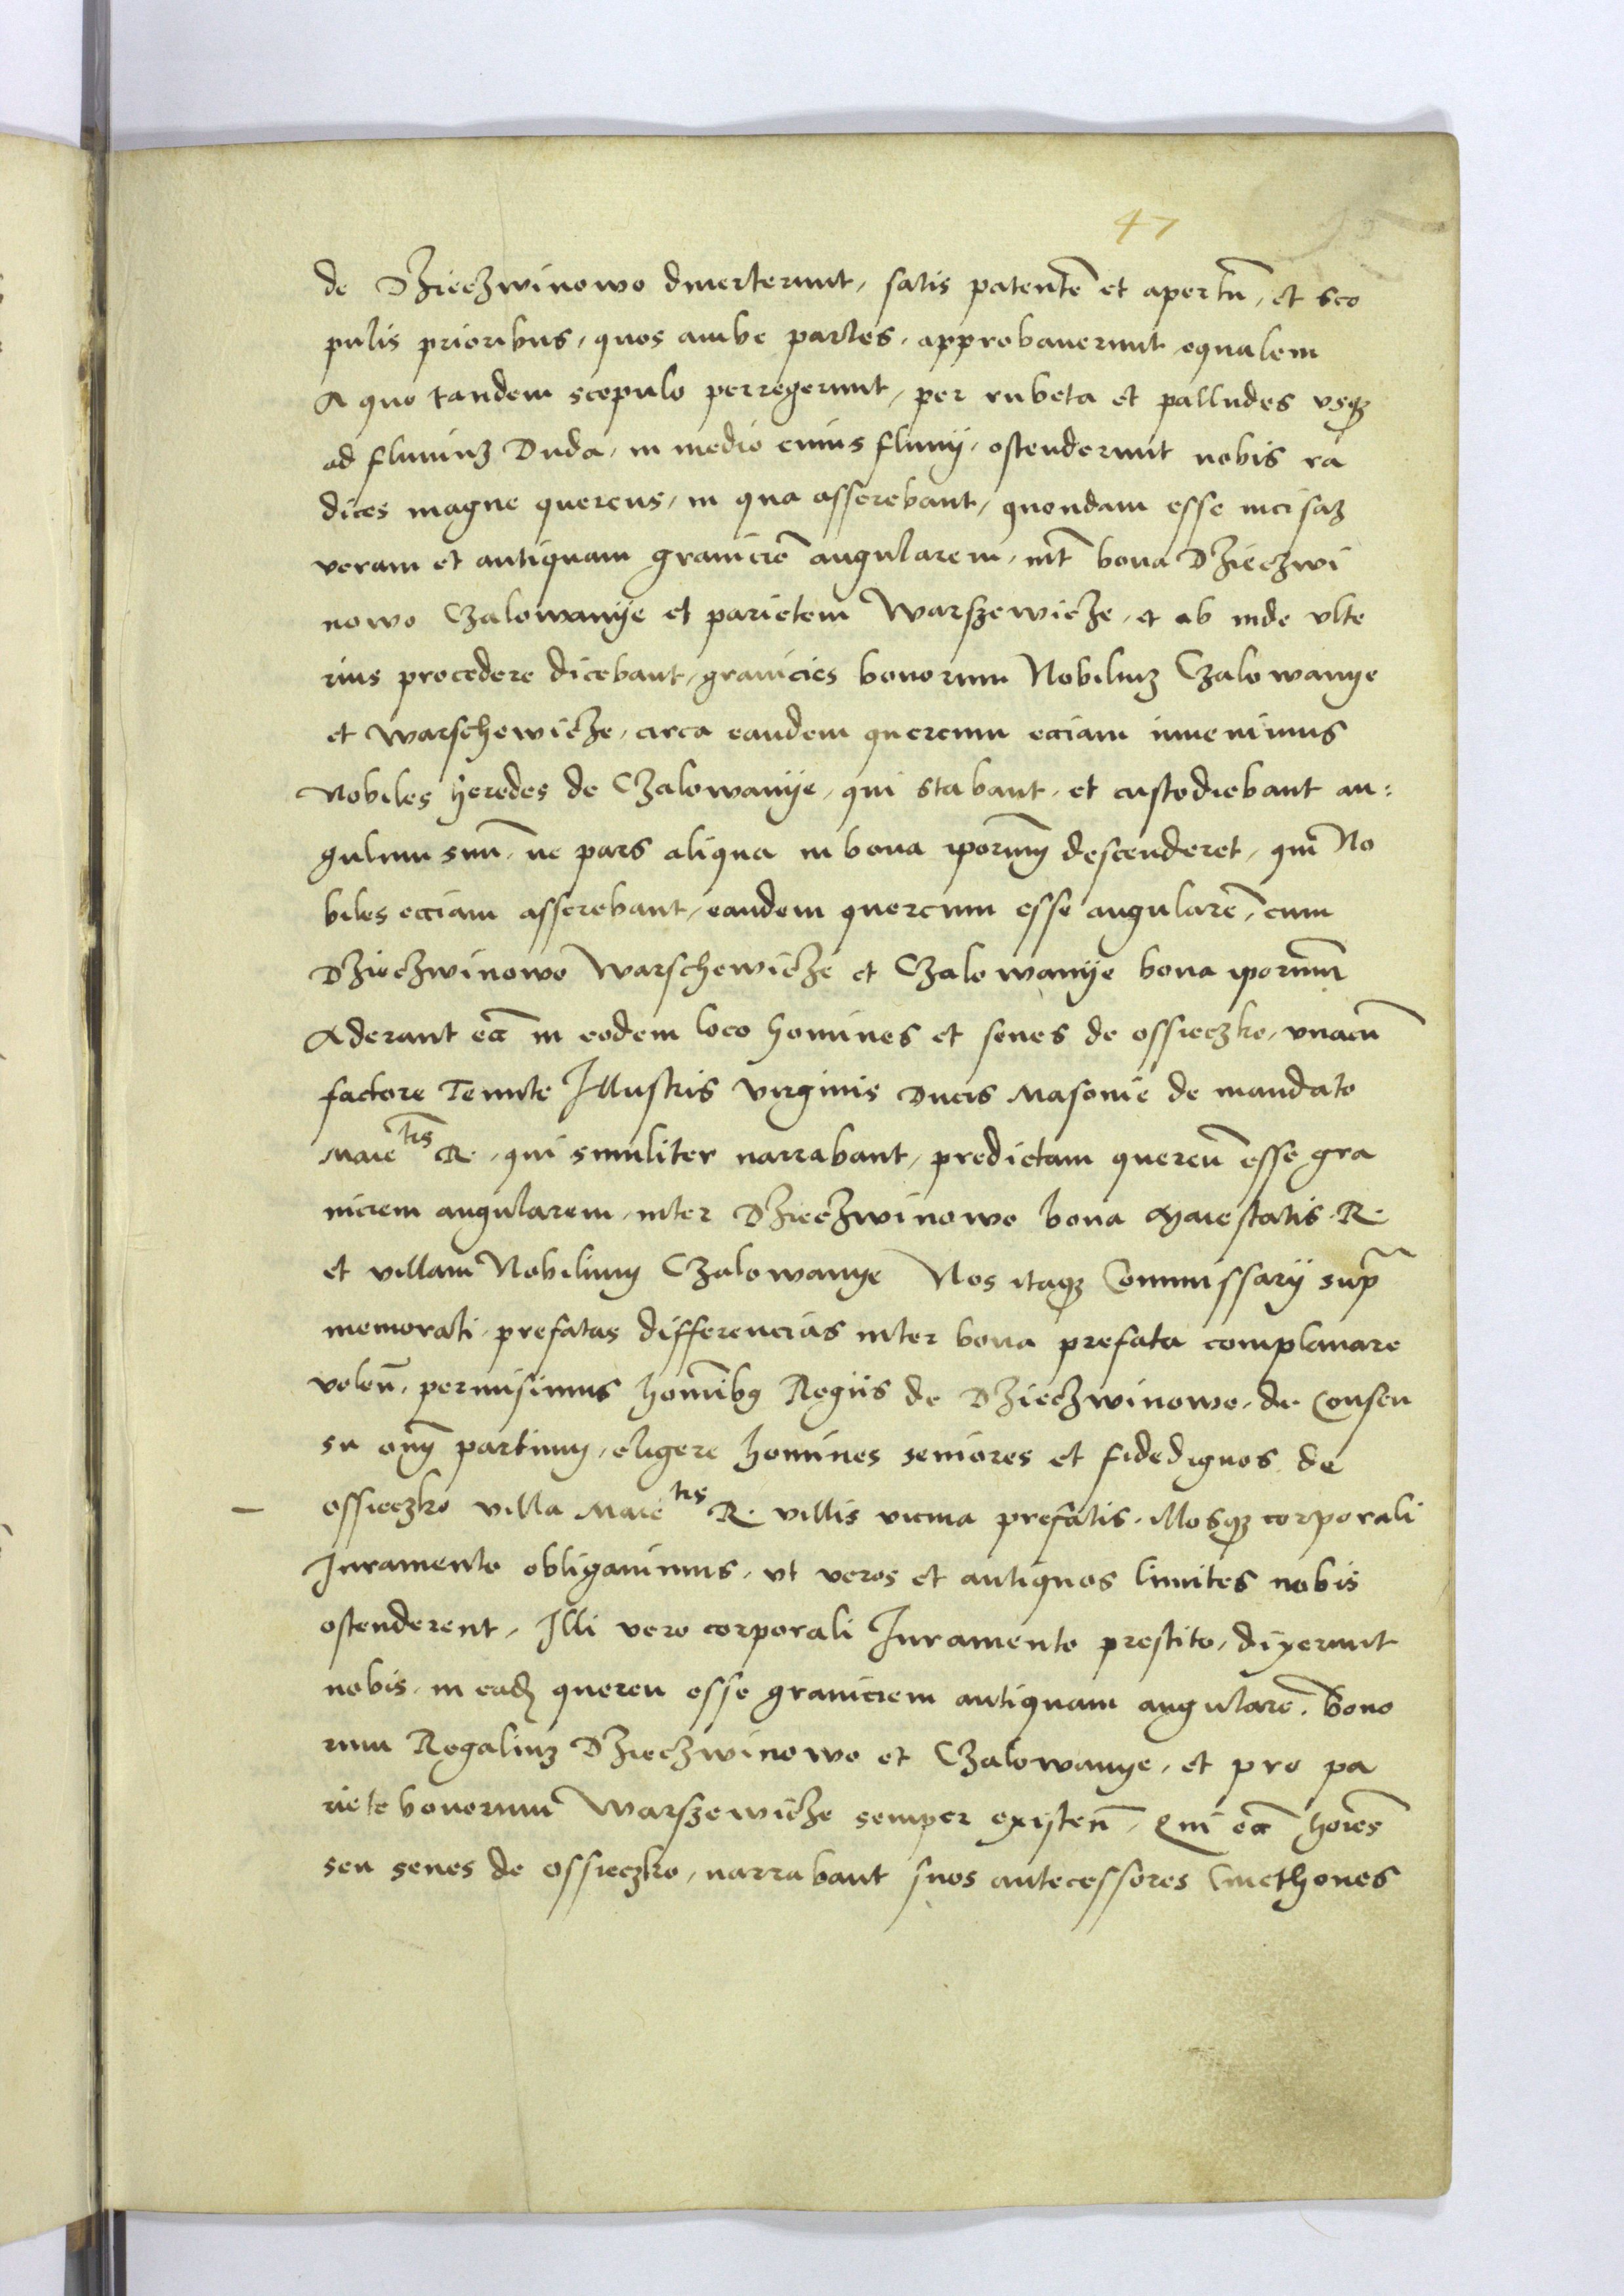 47
de Dzieczwinowo diuerterunt, satis patentē et apertū, et sco
pulis prioribus, quos ambe partes, approbauerunt equalem
A quo tandem scopulo perregerunt, per rubeta et palludes vsqȝ
ad fluuiuȝ Duda, in medio cuius fluuij, ostenderunt nobis ra
dices magne quercus, in qua asserebant, quondam esse incisaȝ
veram et antiquam graniciē angularem, int̄ bona Dzieczwi
nowo Czalowanije et parietem Warszewicze, et ab inde vlte
rius procedere dicebant, granicies bonorum Nobiliuȝ Czalowanye
et Warschewicze, circa eandem quercum eciam inuenimus
Nobiles heredes de Czalowanije, qui stabant, et custodiebant an:
gulum suū, ne pars aliqua in bona ipōrum descenderet, qui No
biles eciam asserebant, eandem quercum esse angularē, cum
Dzieczwinowo Warschewicze et Czalowanije bona ipōrum
Aderant ecā in eodem loco homines et senes de ossieczko, vnacū
factore Tenute Illustris virginis Ducis Masouie de mandato
Maietis R. qui similiter narrabant, predictam quercū esse gra
niciem angularem, inter Dzieczwinowo bona Maiestatis R.
et villam Nobilium Czalowanye Nos itaqȝ Commissarij supra
memorati, prefatas differencias inter bona prefata complanare
volen̄, permisimus homībȝ Regijs de Dzieczwinowo, de Consen
su om̄ partium, eligere homines seniores et fidedignos de
ossieczko villa Maietis R. villis vicina prefatis, illosqȝ corporali
Iuramento obligauimus, vt veros et antiquos limites nobis
ostenderent, Illi vero corporali Iuramento prestito, dixerunt
nobis, in eadȝ quercu esse graniciem antiquam angularē, bono
rum Regaliuȝ Dzieczwinowo et Czalowanye, et pro pa
riete bonorum Warszewicze semper existen̄, Qui ecā hoies
seu senes de ossieczko, narrabant suos antecessores Cmethones